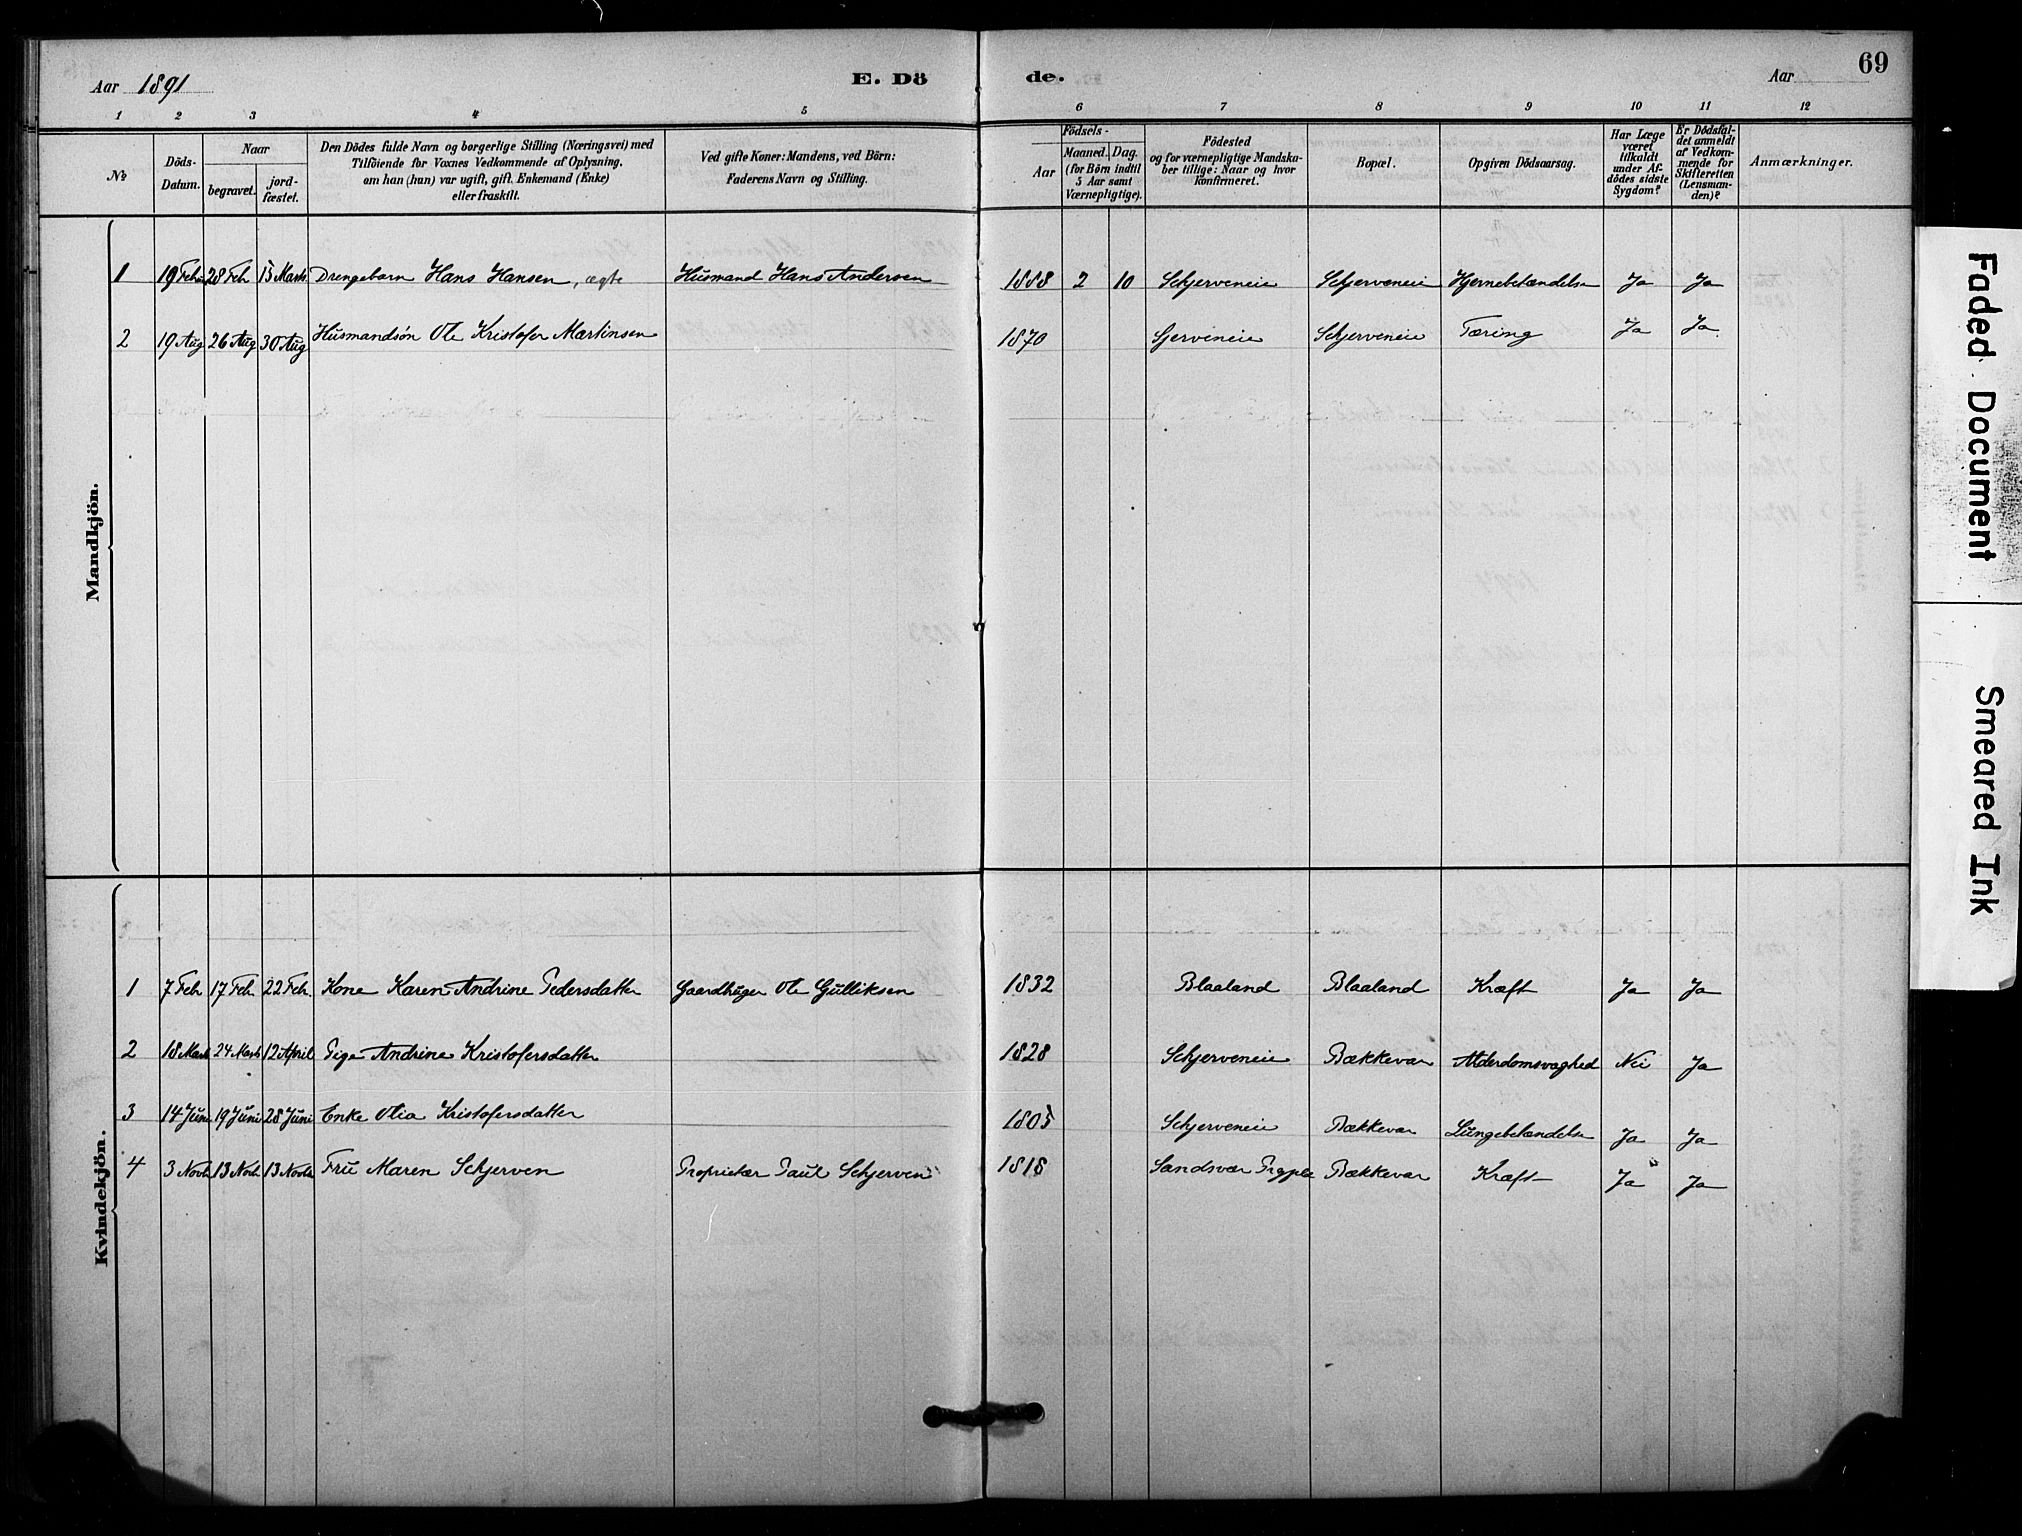 Aar 1891
E. Dö
de.
Aar
69
1 2 3 4 5 6 7 8 9 10 11 12
№
Döds-
Datum.
Naar
begravet.
jord-
fæstet.
Den Dödes fulde Navn og borgerlige Stilling (Næringsvei) med
Tilföiende for Voxnes Vedkommende af Oplysning,
om han (hun) var ugift, gift, Enkemand (Enke)
eller fraskilt.
Ved gifte Koner: Mandens, ved Börn:
Faderens Navn og Stilling.
Födsels-
Aar
Maaned. Dag.
(for Börn indtil
5 Aar samt
Værnepligtige).
Födested
og for værnepligtige Mandska-
ber tillige: Naar og hvor
konfirmeret.
Bopæl.
Opgiven Dödsaarsag.
Har Læge
været
tilkaldt
under Af-
dödes sidste
Sygdom?
Er Dödsfal-
det anmeldt
af Vedkom-
mende for
Skifteretten
(Lensman-
den)?
Anmærkninger.
Mandkjön.
1 19 Feb 28 Feb 15 Marts Drengebarn Hans Hansen, ægte Husmand Hans Andersen 1888 2 10 Schjerveneie Schjerveneie Hjernebetændelse Ja Ja
2 19 Aug 26 Aug 30 Aug Husmandsön Ole Kristofer Martinsen 1870 Sjerveneie Schjerveneie Tæring Ja Ja
Kvindekjön.
1 7 Feb 17 Feb 22 Feb. Kone Karen Andrine Pedersdatter Gaardbruger Ole Gulliksen 1832 Blaaland Blaaland Kræft Ja Ja
2 18 Marts 24 Marts 12 April Pige Andrine Kristofersdatter 1828 Schjerveneie Bækkevar Alderdomsvaghed Nei Ja
3 14 Juni 19 Juni 28 Juni Enke Olia Kristofersdatter 1805 Schjerveneie Bækkevar Lungebetændelse Ja Ja
4 3 Novb 13 Novb 13 Novb Fru Maren Schjerven Proprietær Paul Schjerven 1818 Sandsvær Bækkevar Kræft Ja Ja
Faded Document
Smeared Ink